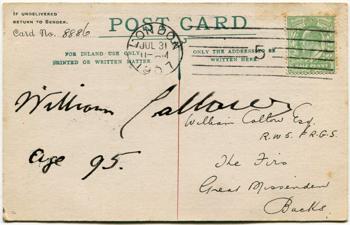 IF UNDELIVERED
RETURN TO SENDER.
Card No. 8886
POST CARD
FOR INLAND USE ONLY
PRINTED OR WRITTEN MATTER
ONLY THE ADDRESS TO BE
WRITTEN HERE
LONDON
JUL 31
07
5
William Callow
age 95.
William Callow Esq.
R.W.S. F.R.G.S.
The Firs
Great Missenden
Bucks.